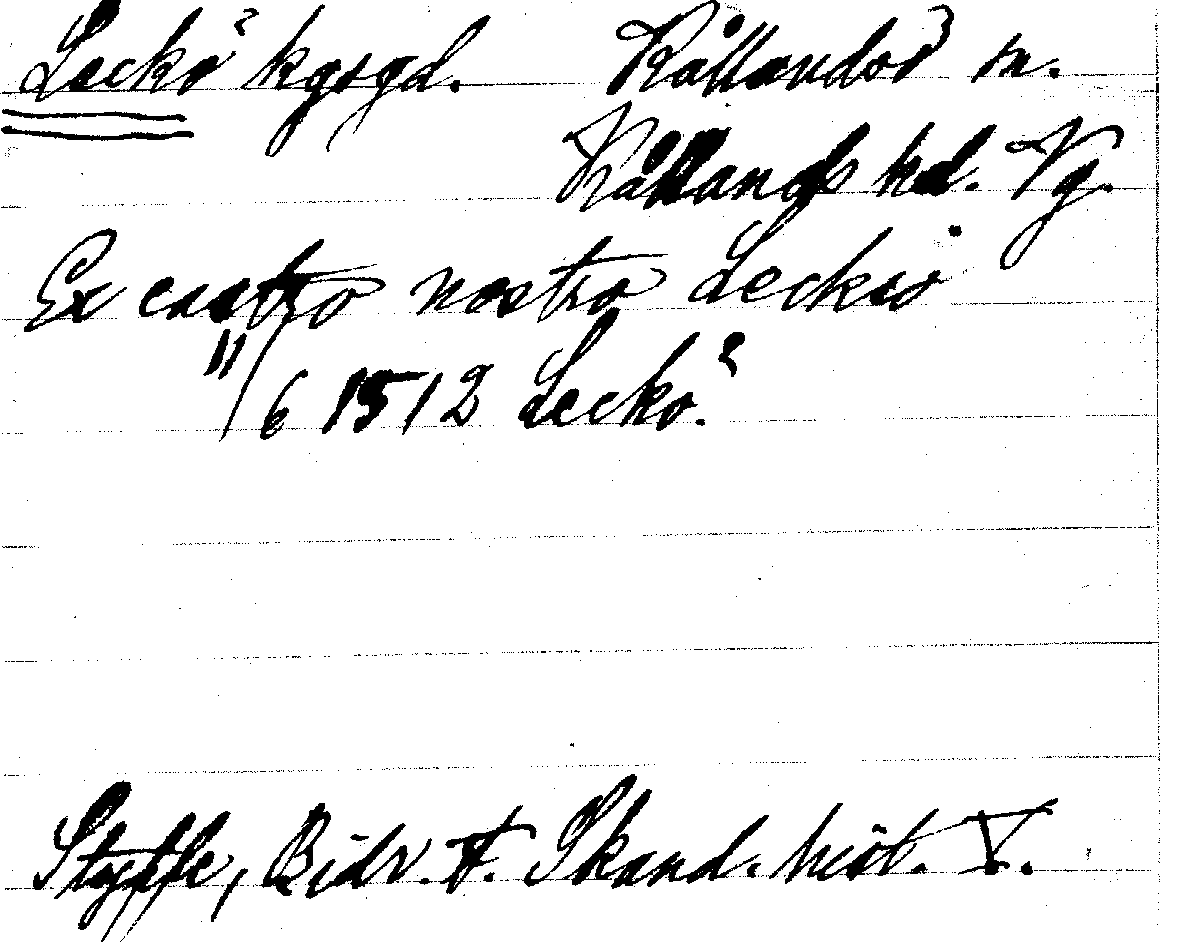 Leckö kgsgd. Kållandsö sn.
Kållands hd. Vg.
Ex castro nostro Leckiö
11/6 1512 Leckö.
Styffe, Bidr. t. Skand. hist. V.